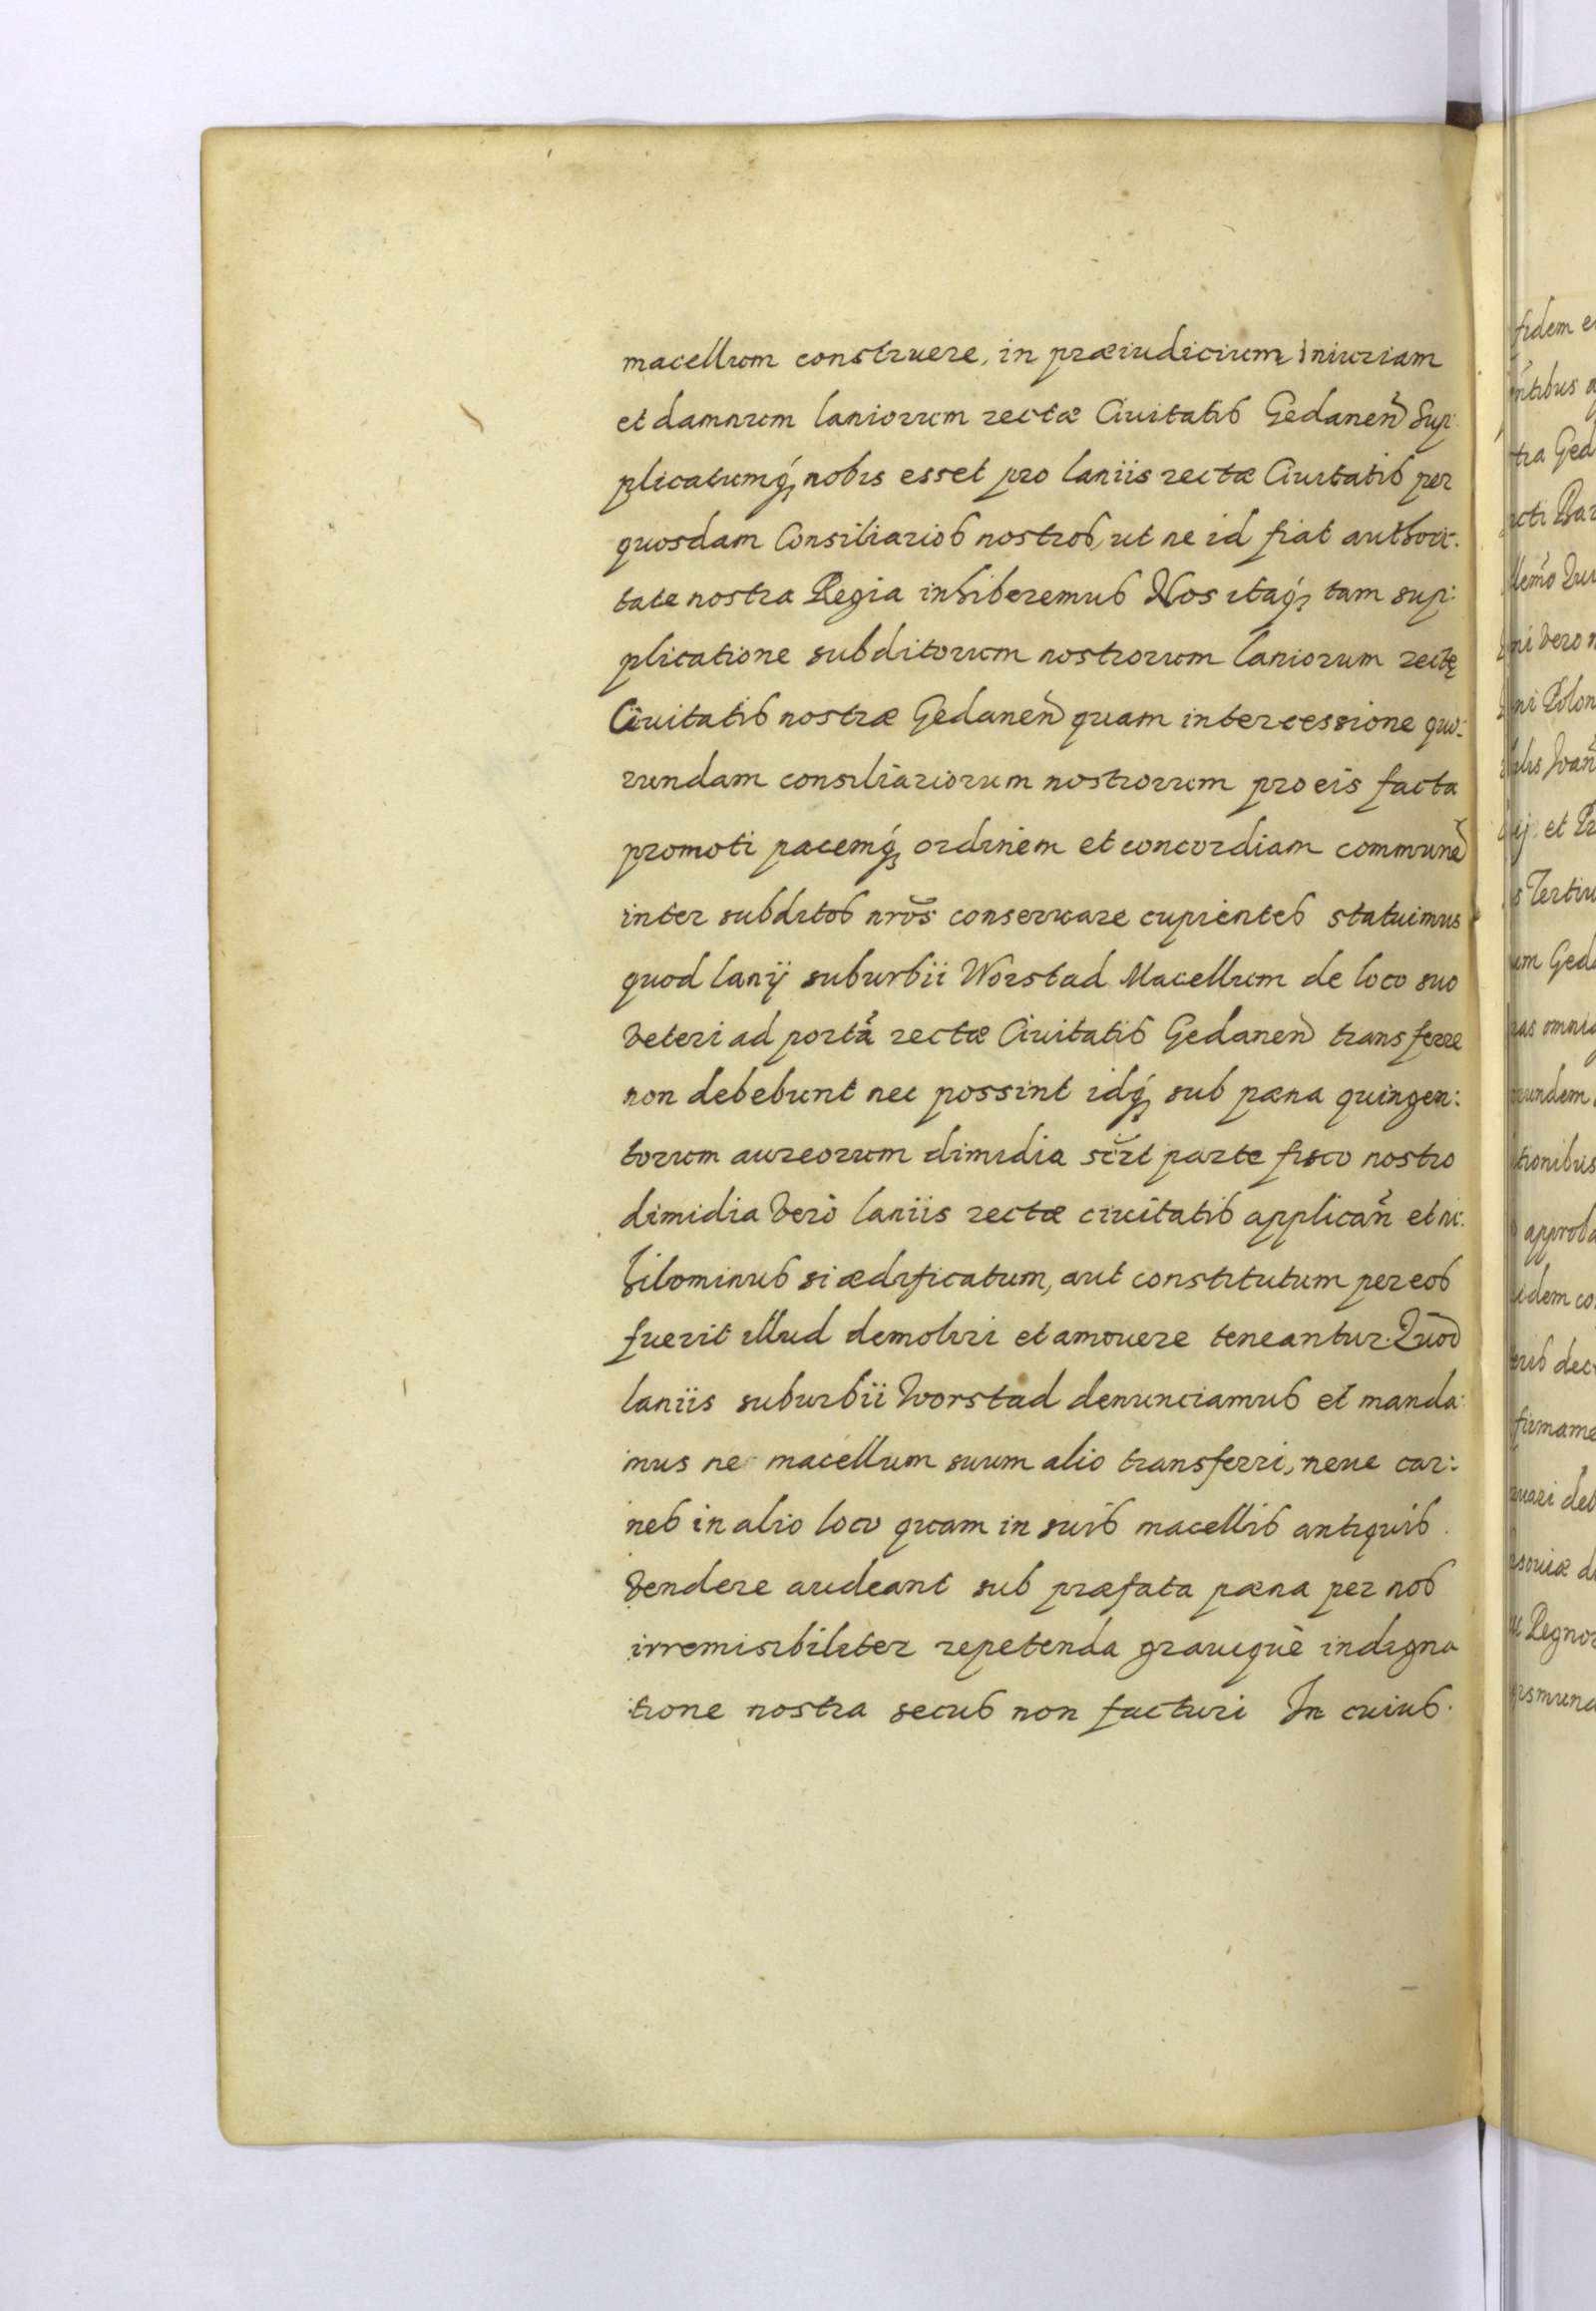 macellum construere, in præiudicium iniuriam
et damnum laniorum rectæ Ciuitatis Gedanen̄ Sup:
plicatumq́ꝫ nobis esset pro laniis rectæ Ciuitatis per
quosdam Consiliarios nostros, ut ne id fiat authori:
tate nostra Regia inhiberemus Nos itaq́ꝫ tam sup:
plicatione subditorum nostrorum laniorum rectę
Ciuitatis nostræ Gedanen̄ quam intercessione quo:
rundam consiliariorum nostrorum pro eis facta
promoti pacemq́ꝫ ordinem et concordiam communē
inter subditos nr̄os conseruare cupientes statuimus
quod lanij suburbii Worstad Macellum de loco suo
veteri ad portā rectæ Ciuitatis Gedanen̄ transferre
non debebunt nec possint idq́ꝫ sub pæna quingen:
torum aureorum dimidia scīlt parte fisco nostro
dimidia verò laniis rectæ ciuitatis applican̄ et ni:
hilominus si ædificatum, aut constitutum per eos
fuerit illud demoliri et amouere teneantur. Quod
laniis suburbii Worstad denunciamus et manda:
mus ne macellum suum alio transferri, neue car:
nes in alio loco quam in suis macellis antiquis.
vendere audeant sub præfata pæna per nos
irremisibiliter repetenda grauiquè indigna
tione nostra secus non facturi In cuius.
fidem
tra Ged
ni vero
ni Polon
ij et Pr
s Tertiu
um Ged
as omni
rundem
tionibus
approba
idem co
firmame
Regno